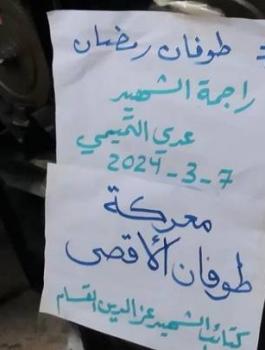 = طوفان رمضان
راجمة الشهيد
عدي التميمي
2024-3-7
معركة
طوفان الأقصى
كتائب الشهيد عز الدين القسام